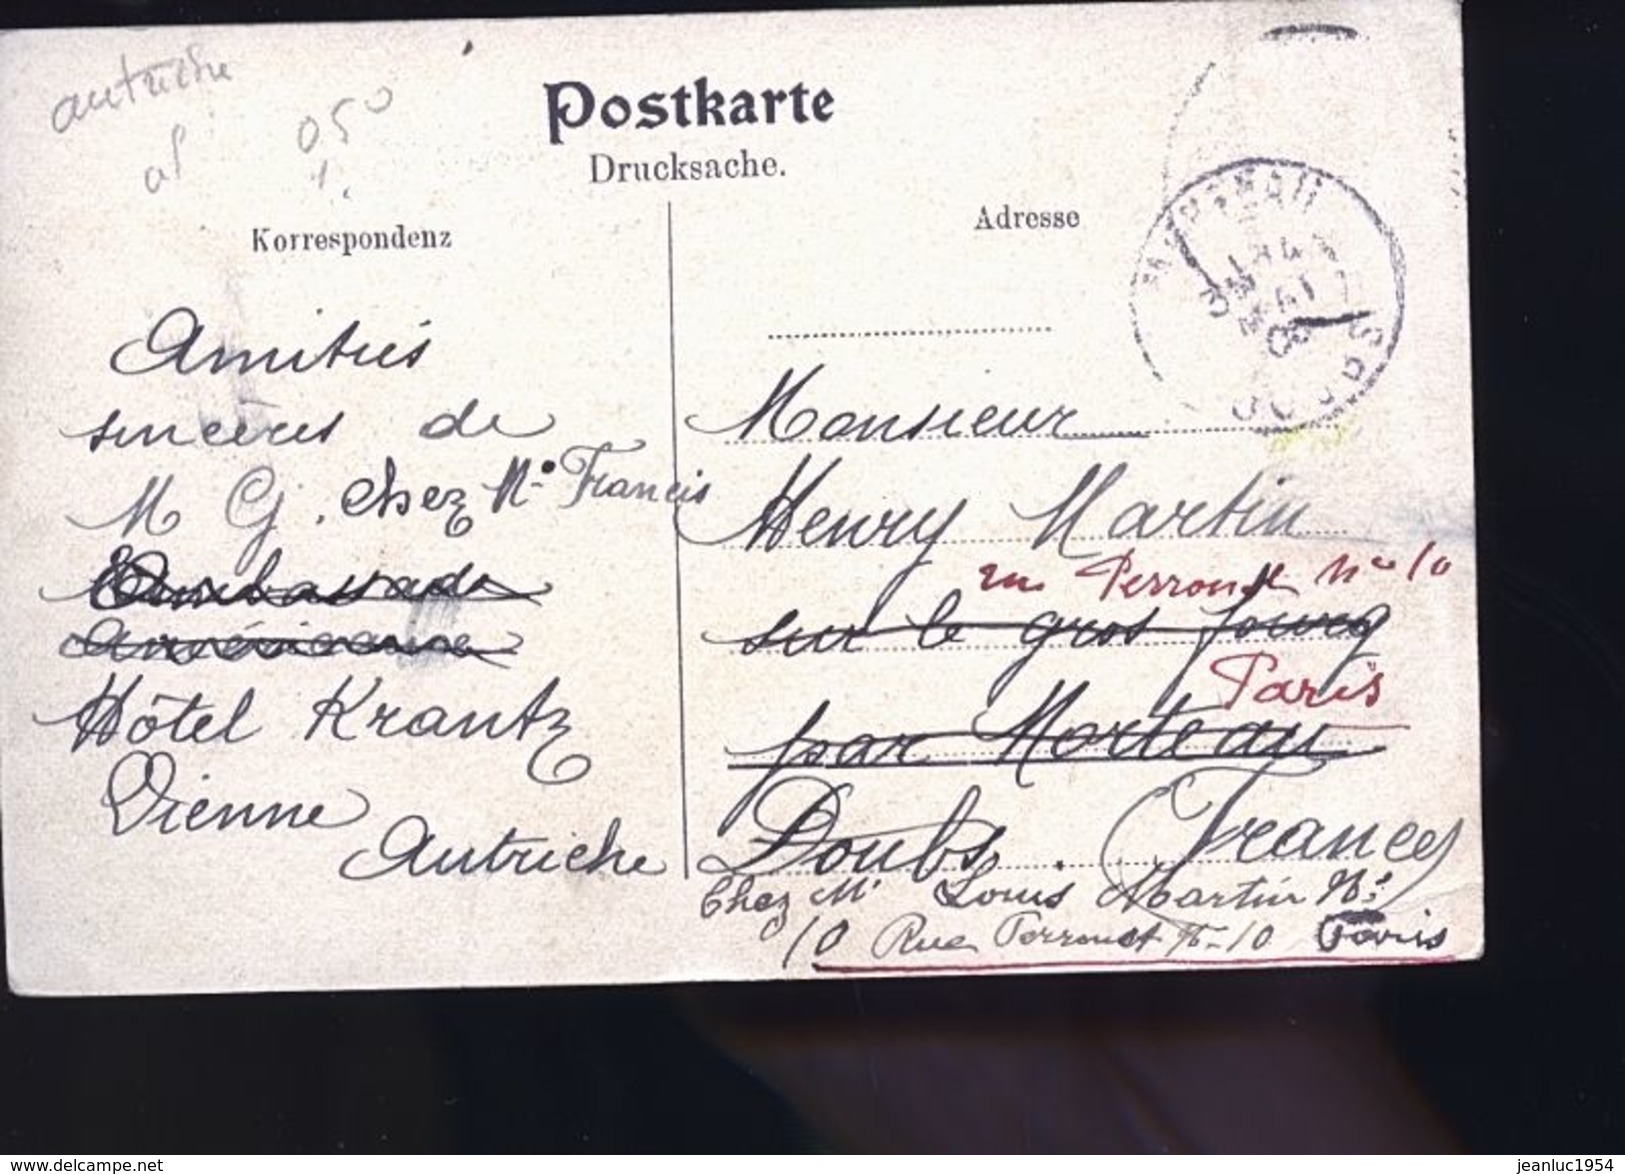 autriche
al
050
1.
Postkarte
Drucksache.
Korrespondenz
Adresse
MORTEAU
DOUBS
Amitiés
sincères de
M G. chez Mr Francis
Ambassade
Américaine
Hôtel Krantz
Vienne
Autriche
Monsieur
Henry Martin
rue Perronet No 10
sur le gros
Paris
par Morteau
Doubs. (France)
Chez Mr Louis Martin No:
10 Rue Perronet No 10 Paris
www.delcampe.net
jeanluc1954